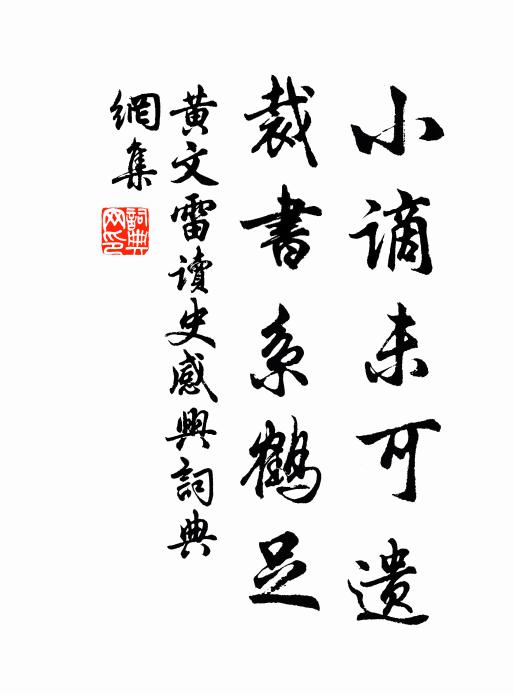 小謫未可遺
裁書系鶴足
黃文雷讀史感興詞典
網集
詞典
网印